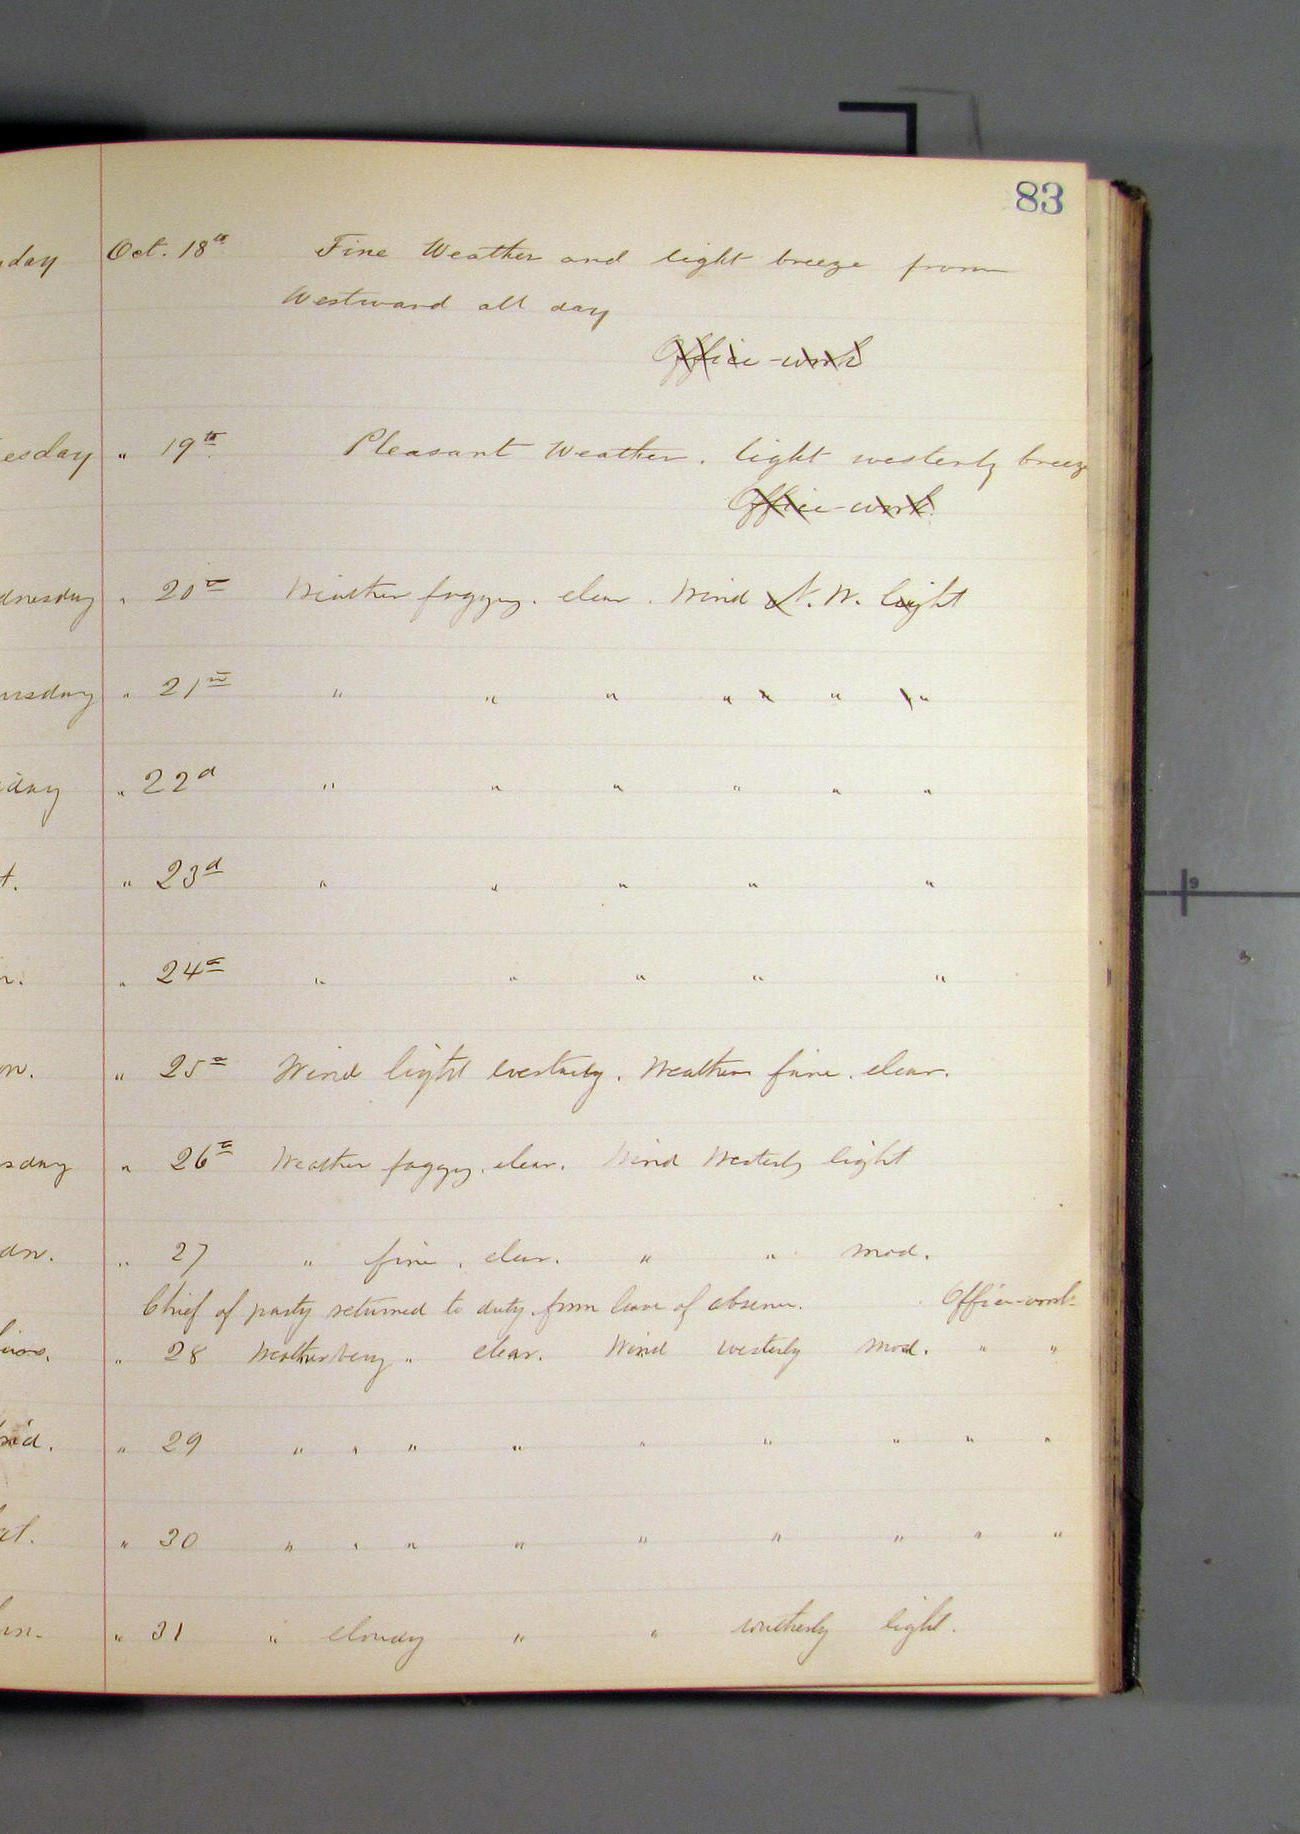 83
day Oct. 18th Fine Weather and light breeze from
Westward all day
Office-work
esday " 19th Pleasant Weather. light westerly breeze
Office-work
dnesday " 20th Weather foggy. clear. Wind N. W. light
ursday " 21st " " " " " " "
iday " 22d " " " " " "
t. " 23d " " " " "
n. " 24th " " " " "
on. " 25th Wind light westerly. Weather fine. clear.
sday " 26th Weather foggy. clear. Wind Westerly light
dn. " 27 " fine. clear. " " mod.
Chief of party returned to duty from leave of absence. Office-work
hurs. " 28 Weather very " clear. Wind westerly mod. " "
rid. " 29 " " " " " " " " "
at. " 30 " " " " " " " " "
un. " 31 " cloudy " " southerly light.